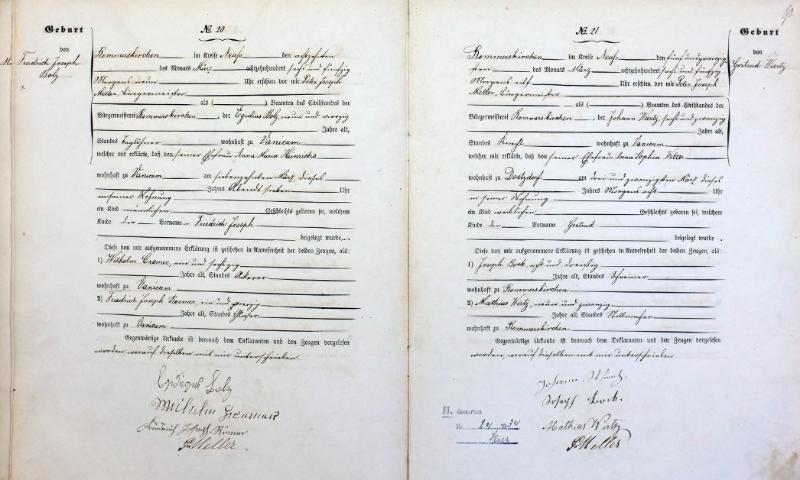 Geburt
№ 20
von
Friedrich Joseph
Bolz
Rommerskirchen im Kreise Neuß den achtzehnten
des Monats März achtzehnhundert sechs und fünfzig
Morgens neun Uhr erschien vor mir Peter Joseph
Meller, Bürgermeister
als ( ) Beamten des Civilstandes der
Bürgermeisterei Rommerskirchen, der Egidius Bolz, neun und vierzig
Jahre alt,
Standes Taglöhner wohnhaft zu Vanicum
welcher mir erklärte, daß von seiner Ehefrau Anna Maria Heinrichs
wohnhaft zu Vanicum am siebenzehnten März dieses
Jahres Abends sieben Uhr
in seiner Wohnung
ein Kind männlichen Geschlechts geboren sei, welchem
Kinde der Vorname Friedrich Joseph
beigelegt wurde.
Diese von mir aufgenommene Erklärung ist geschehen in Anwesenheit der beiden Zeugen, als:
1) Wilhelm Cremer, ein und sechszig
Jahre alt, Standes Ackerer
wohnhaft zu Vanicum
2) Friedrich Joseph Roemer, ein und
Jahre alt, Standes
wohnhaft zu Vanicum
Gegenwärtige Urkunde ist demnach dem Deklaranten und den Zeugen vorgelesen
worden, worauf dieselben mit mir unterschrieben.
Egidius Bolz
Wilhelm Cremer
Friedrich Joseph Römer
P. Meller
90.
№ 21
Geburt
von
Gertrud Wirtz
Rommerskirchen im Kreise Neuß den fünf und zwanzig
sten des Monats März achtzehnhundert sechs und fünfzig
Morgens elf Uhr erschien vor mir Peter Joseph
Meller, Bürgermeister
als ( ) Beamten des Civilstandes der
Bürgermeisterei Rommerskirchen, der Johann Wirtz, sechs und zwanzig
Jahre alt,
Standes Knecht wohnhaft zu Vanicum
welcher mir erklärte, daß von seiner Ehefrau Anna Sophia
wohnhaft zu am drei und zwanzigsten März dieses
Jahres Morgens acht Uhr
in seiner Wohnung
ein Kind weiblichen Geschlechts geboren sei, welchem
Kinde der Vorname Gertrud
beigelegt wurde.
Diese von mir aufgenommene Erklärung ist geschehen in Anwesenheit der beiden Zeugen, als:
1) Joseph Bock, acht und dreißig
Jahre alt, Standes Schreiner
wohnhaft zu Rommerskirchen
2) Mathias Wirtz, neun und zwanzig
Jahre alt, Standes Stellmacher
wohnhaft zu Rommerskirchen
Gegenwärtige Urkunde ist demnach dem Deklaranten und den Zeugen vorgelesen
worden, worauf dieselben mit mir unterschrieben.
Johann Wirtz
Joseph Bock
H.
Nr.
Mathias Wirtz
P. Meller